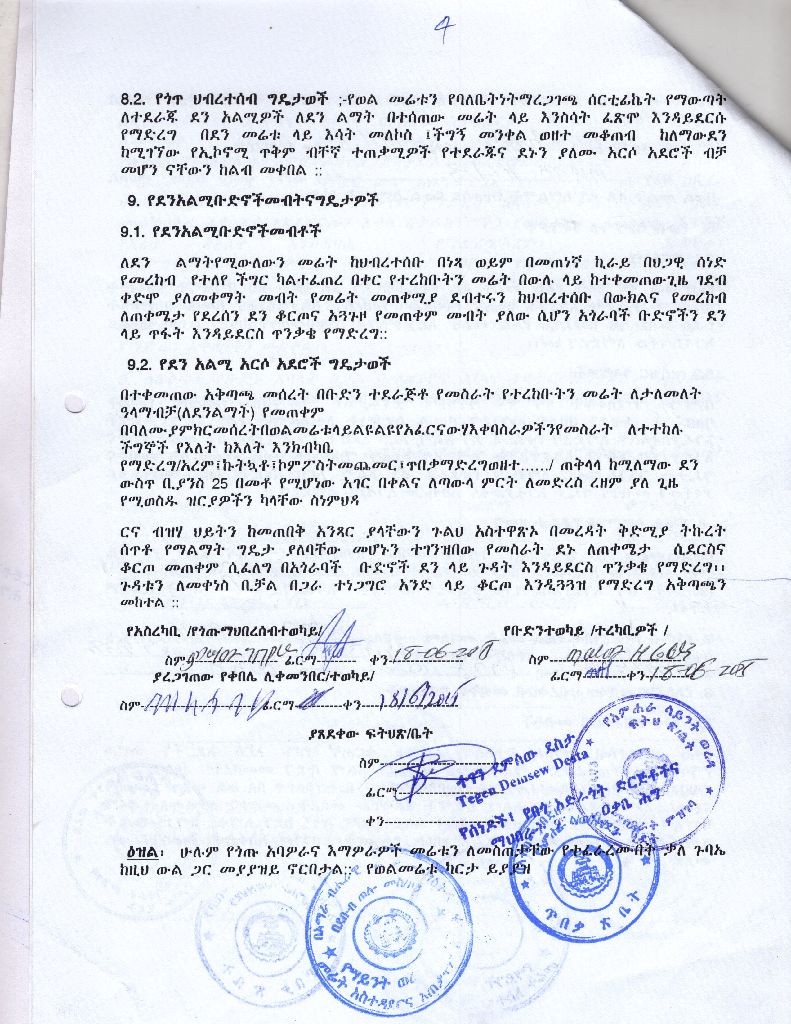 4
8.2. የጎጥ ህብረተሰብ ግዴታወች ;-የወል መሬቱን የባለቤትነትማረጋገጫ ሰርቲፊኬት የማውጣት
ለተደራጁ ደን አልሚዎች ለደን ልማት በተሰጠው መሬት ላይ እንስሳት ፈጽሞ እንዳይደርሱ
የማድረግ በደን መሬቱ ላይ እሳት መለኮስ ፤ችግኝ መንቀል ወዘተ መቆጠብ ከለማውደን
ከሚገኘው የኢኮኖሚ ጥቅም ብቸኛ ተጠቃሚዎች የተደራጁና ደኑን ያለሙ አርሶ አደሮች ብቻ
መሆን ናቸውን ከልብ መቀበል ::
9. የደንአልሚቡድኖችመብትናግዴታዎች
9.1. የደንአልሚቡድኖችመብቶች
ለደን ልማትየሚውለውን መሬት ከህብረተሰቡ በነጻ ወይም በመጠነኛ ኪራይ በህጋዊ ሰነድ
የመረከብ የተለየ ችግር ካልተፈጠረ በቀር የተረከቡትን መሬት በውሉ ላይ ከተቀመጠውጊዜ ገደብ
ቀድሞ ያለመቀማት መብት የመሬት መጠቀሚያ ደብተሩን ከህብረተሰቡ በውክልና የመረከብ
ለጠቀሜታ የደረሰን ደን ቆርጦና አጓጉዞ የመጠቀም መብት ያለው ሲሆን አጎራባች ቡድኖችን ደን
ላይ ጥፋት እንዳይደርስ ጥንቃቄ የማድረግ::
9.2. የደን አልሚ አርሶ አደሮች ግዴታወች
በተቀመጠው አቅጣጫ መሰረት በቡድን ተደራጅቶ የመስራት የተረከቡትን መሬት ለታለመለት
ዓላማብቻ(ለደንልማት) የመጠቀም
በባለሙያምክርመሰረትበወልመሬቱላይልዩልዩየአፈርናውሃእቀባስራዎችንየመስራት ለተተከሉ
ችግኞች የእለት ከእለት እንክብካቤ
የማድረግ/አረም፣ኩትኳቶ፣ኮምፖስትመጨመር፣ጥበቃማድረግወዘተ....../ ጠቅላላ ከሚለማው ደን
ውስጥ ቢያንስ 25 በመቶ የሚሆነው አገር በቀልና ለጣውላ ምርት ለመድረስ ረዘም ያለ ጊዜ
የሚወስዱ ዝርያዎችን ካላቸው ስነምህዳ
ርና ብዝሃ ህይትን ከመጠበቅ አንጻር ያላቸውን ጉልህ አስተዋጽኦ በመረዳት ቅድሚያ ትኩረት
ሰጥቶ የማልማት ግዴታ ያለባቸው መሆኑን ተገንዝበው የመስራት ደኑ ለጠቀሜታ ሲደርስና
ቆርጦ መጠቀም ሲፈልግ በአጎራባች ቡድኖች ደን ላይ ጉዳት እንዳይደርስ ጥንቃቄ የማድረግ፡፡
ጉዳቱን ለመቀነስ ቢቻል በጋራ ተነጋግሮ አንድ ላይ ቆርጦ እንዲጓጓዝ የማድረግ አቅጣጫን
መከተል ::
የአስረካቢ /የጎጡማህበረሰብተወካይ/ የቡድንተወካይ /ተረካቢዎች /
ስም ፊርማ ቀን 18-06-201 ስም
ያረጋገጠው የቀበሌ ሊቀመንበር/ተወካይ/ ፊርማ ቀን 18-06-201
ስም ፊርማ ቀን 18/6/2011
ያጸደቀው ፍትህጽ/ቤት
ስም
ፊርማ
ቀን
ተገን ደምሰው ደስታ
Tegen Demsew Desta
የሰነዶች፣ የበጎ አድራጎት ድርጅቶችና
ማህበራት ዐቃቤ ሕግ
የአምሐራ ሳይንት ወረዳ
ፍትህ ጽ/ቤት
ዕዝል፡ ሁሉም የጎጡ አባዎራና እማዎራዎች መሬቱን ለመስጠታቸው የተፈራረሙበት ቃለ ጉባኤ
ከዚህ ውል ጋር መያያዝይ ኖርበታል፡፡ የወልመሬቱ ካርታ ይያያዝ
ጥበቃ ጽ ቤት